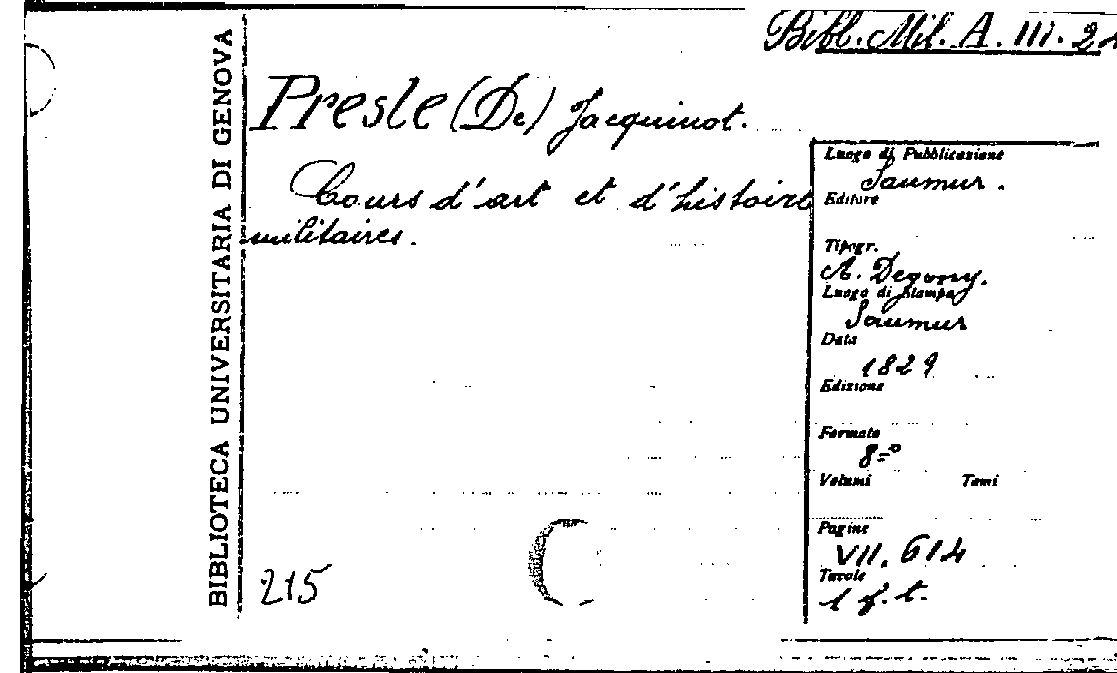 Bibl. Mil. A. III. 2
BIBLIOTECA UNIVERSITARIA DI GENOVA
Presle (De) Jacquinot.
Cours d'art et d'histoire
militaires.
Luogo di Pubblicazione
Saumur.
Editore
Tipogr.
A. Degouy.
Luogo di Stampa
Saumur
Data
1829
Edizione
Formato
8=º
Volumi Tomi
Pagine
VII, 614
Tavole
1 f. t.
215